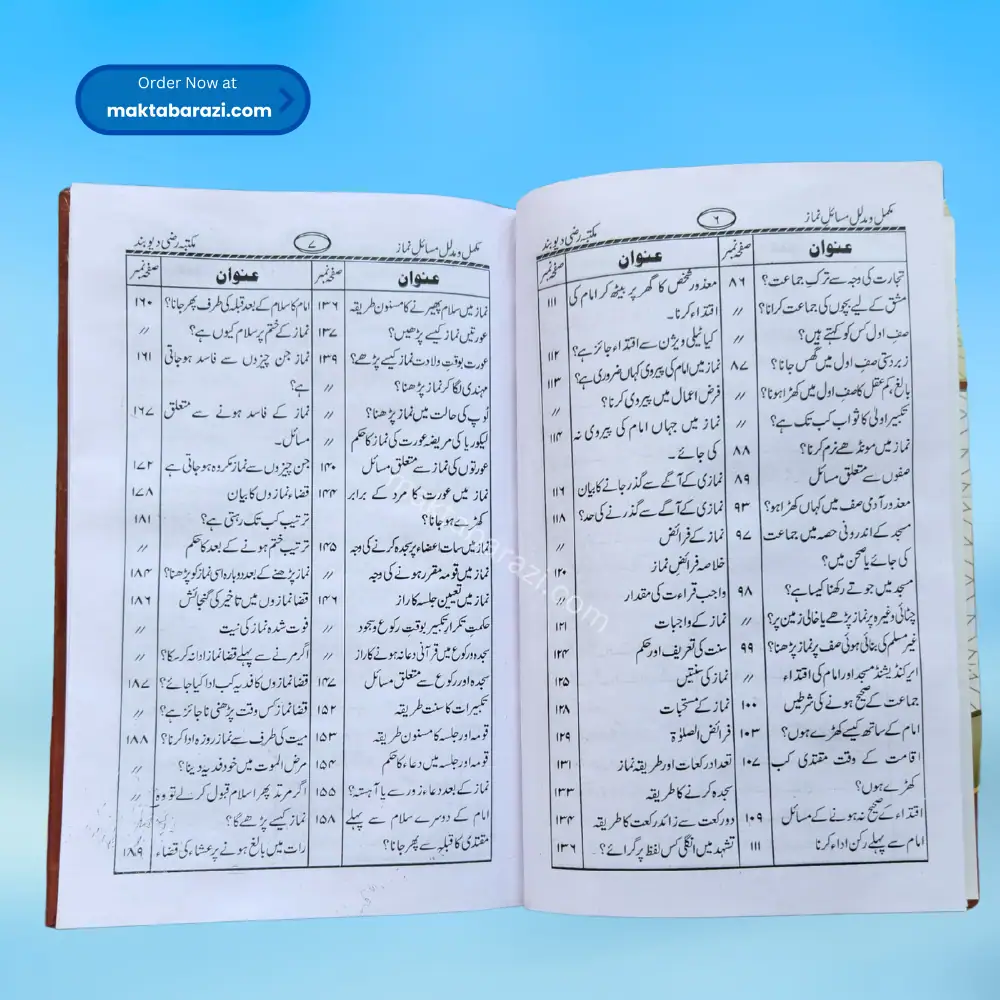 Order Now at
maktabarazi.com
مکمل و مدلل مسائل نماز ۶ مکتبہ رضی دیوبند
عنوان صفحہ نمبر
تجارت کی وجہ سے ترک جماعت؟ ۸۶
مشق کے لیے بچوں کی جماعت کرانا؟ 〃
صف اول کس کو کہتے ہیں؟ 〃
زبردستی صف اول میں گھس جانا؟ ۸۷
بالغ کم عقل کا صف اول میں کھڑا ہونا؟ 〃
تکبیر اولیٰ کا ثواب کب تک ہے؟ 〃
نماز میں مونڈھے نرم کرنا؟ ۸۸
صفوں سے متعلق مسائل ۸۹
معذور آدمی صف میں کہاں کھڑا ہو؟ ۹۳
مسجد کے اندرونی حصہ میں جماعت ۹۷
کی جائے یا صحن میں؟
مسجد میں جوتے رکھنا کیسا ہے؟ ۹۸
چٹائی وغیرہ پر نماز پڑھے یا خالی زمین پر؟ 〃
غیر مسلم کی بنائی ہوئی صف پر نماز پڑھنا؟ ۹۹
ایرکنڈیشنڈ مسجد اور امام کی اقتداء 〃
جماعت کے صحیح ہونے کی شرطیں ۱۰۰
امام کے ساتھ کیسے کھڑے ہوں؟ ۱۰۳
اقامت کے وقت مقتدی کب ۱۰۷
کھڑے ہوں؟
اقتداء کے صحیح نہ ہونے کے مسائل ۱۰۹
امام سے پہلے رکن اداء کرنا ۱۱۱
عنوان صفحہ نمبر
معذور شخص کا گھر پر بیٹھ کر امام کی ۱۱۱
اقتداء کرنا۔
کیا ٹیلی ویژن سے اقتداء جائز ہے؟ ۱۱۲
نماز میں امام کی پیروی کہاں ضروری ہے؟ ۱۱۳
فرض اعمال میں پیروی کرنا؟ 〃
نماز میں جہاں امام کی پیروی نہ ۱۱۴
کی جائے۔
نمازی کے آگے سے گذر جانے کا بیان ۱۱۶
نمازی کے آگے سے گذرنے کی حد؟ ۱۱۸
نماز کے فرائض 〃
خلاصہ فرائض نماز ۱۲۰
واجب قراءت کی مقدار 〃
نماز کے واجبات ۱۲۱
سنت کی تعریف اور حکم ۱۲۴
نماز کی سنتیں ۱۲۵
نماز کے مستحبات ۱۲۸
فرائض الصلوٰۃ ۱۲۹
تعداد رکعات اور طریقہ نماز ۱۳۱
سجدہ کرنے کا طریقہ ۱۳۳
دو رکعت سے زائد رکعت کا طریقہ ۱۳۴
تشہد میں انگلی کس لفظ پر گرائے؟ ۱۳۶
مکمل و مدلل مسائل نماز ۷ مکتبہ رضی دیوبند
عنوان صفحہ نمبر
نماز میں سلام پھیرنے کا مسنون طریقہ ۱۳۶
عورتیں نماز کیسے پڑھیں؟ ۱۳۷
عورت بوقت ولادت نماز کیسے پڑھے؟ ۱۳۹
مہندی لگا کر نماز پڑھنا؟ 〃
لُوپ کی حالت میں نماز پڑھنا؟ 〃
لیکوریا کی مریضہ عورت کی نماز کا حکم 〃
عورتوں کی نماز سے متعلق مسائل ۱۴۰
نماز میں عورت کا مرد کے برابر ۱۴۴
کھڑے ہو جانا؟
نماز میں سات اعضاء پر سجدہ کرنے کی وجہ ۱۴۵
نماز میں قومہ مقرر ہونے کی وجہ 〃
نماز میں تعیین جلسہ کا راز ۱۴۶
حکمت تکرار تکبیر بوقت رکوع و سجود 〃
سجدہ و رکوع میں قرآنی دعا نہ ہونے کا راز 〃
سجدہ اور رکوع سے متعلق مسائل ۱۴۷
تکبیرات کا سنت طریقہ ۱۵۲
قومہ اور جلسہ کا مسنون طریقہ ۱۵۳
قومہ اور جلسہ میں دعاء کا حکم ۱۵۴
نماز کے بعد دعاء زور سے یا آہستہ؟ ۱۵۵
امام کے دوسرے سلام سے پہلے ۱۵۸
مقتدی کا قبلہ سے پھر جانا؟
عنوان صفحہ نمبر
امام کا سلام کے بعد قبلہ کی طرف پھر جانا؟ ۱۶۰
نماز کے ختم پر سلام کیوں ہے؟ 〃
نماز جن چیزوں سے فاسد ہو جاتی ۱۶۱
ہے؟
نماز کے فاسد ہونے سے متعلق ۱۶۷
مسائل۔
جن چیزوں سے نماز مکروہ ہو جاتی ہے ۱۷۲
قضاء نمازوں کا بیان ۱۷۸
ترتیب کب تک رہتی ہے؟ ۱۸۱
ترتیب ختم ہونے کے بعد کا حکم 〃
نماز پڑھنے کے بعد دوبارہ اسی نماز کو پڑھنا؟ ۱۸۴
قضا نمازوں میں تاخیر کی گنجائش ۱۸۶
فوت شدہ نماز کی نیت 〃
اگر مرنے سے پہلے قضا نماز ادا نہ کر سکا؟ 〃
قضا نمازوں کا فدیہ کب ادا کیا جائے؟ ۱۸۷
قضا نماز کس وقت پڑھنی ناجائز ہے؟ 〃
میت کی طرف سے نماز روزہ ادا کرنا؟ ۱۸۸
مرض الموت میں خود فدیہ دینا؟ 〃
اگر مرتد پھر اسلام قبول کر لے تو وہ 〃
نماز کیسے پڑھے گا؟
رات میں بالغ ہونے پر عشاء کی قضاء ۱۸۹
maktabarazi.com